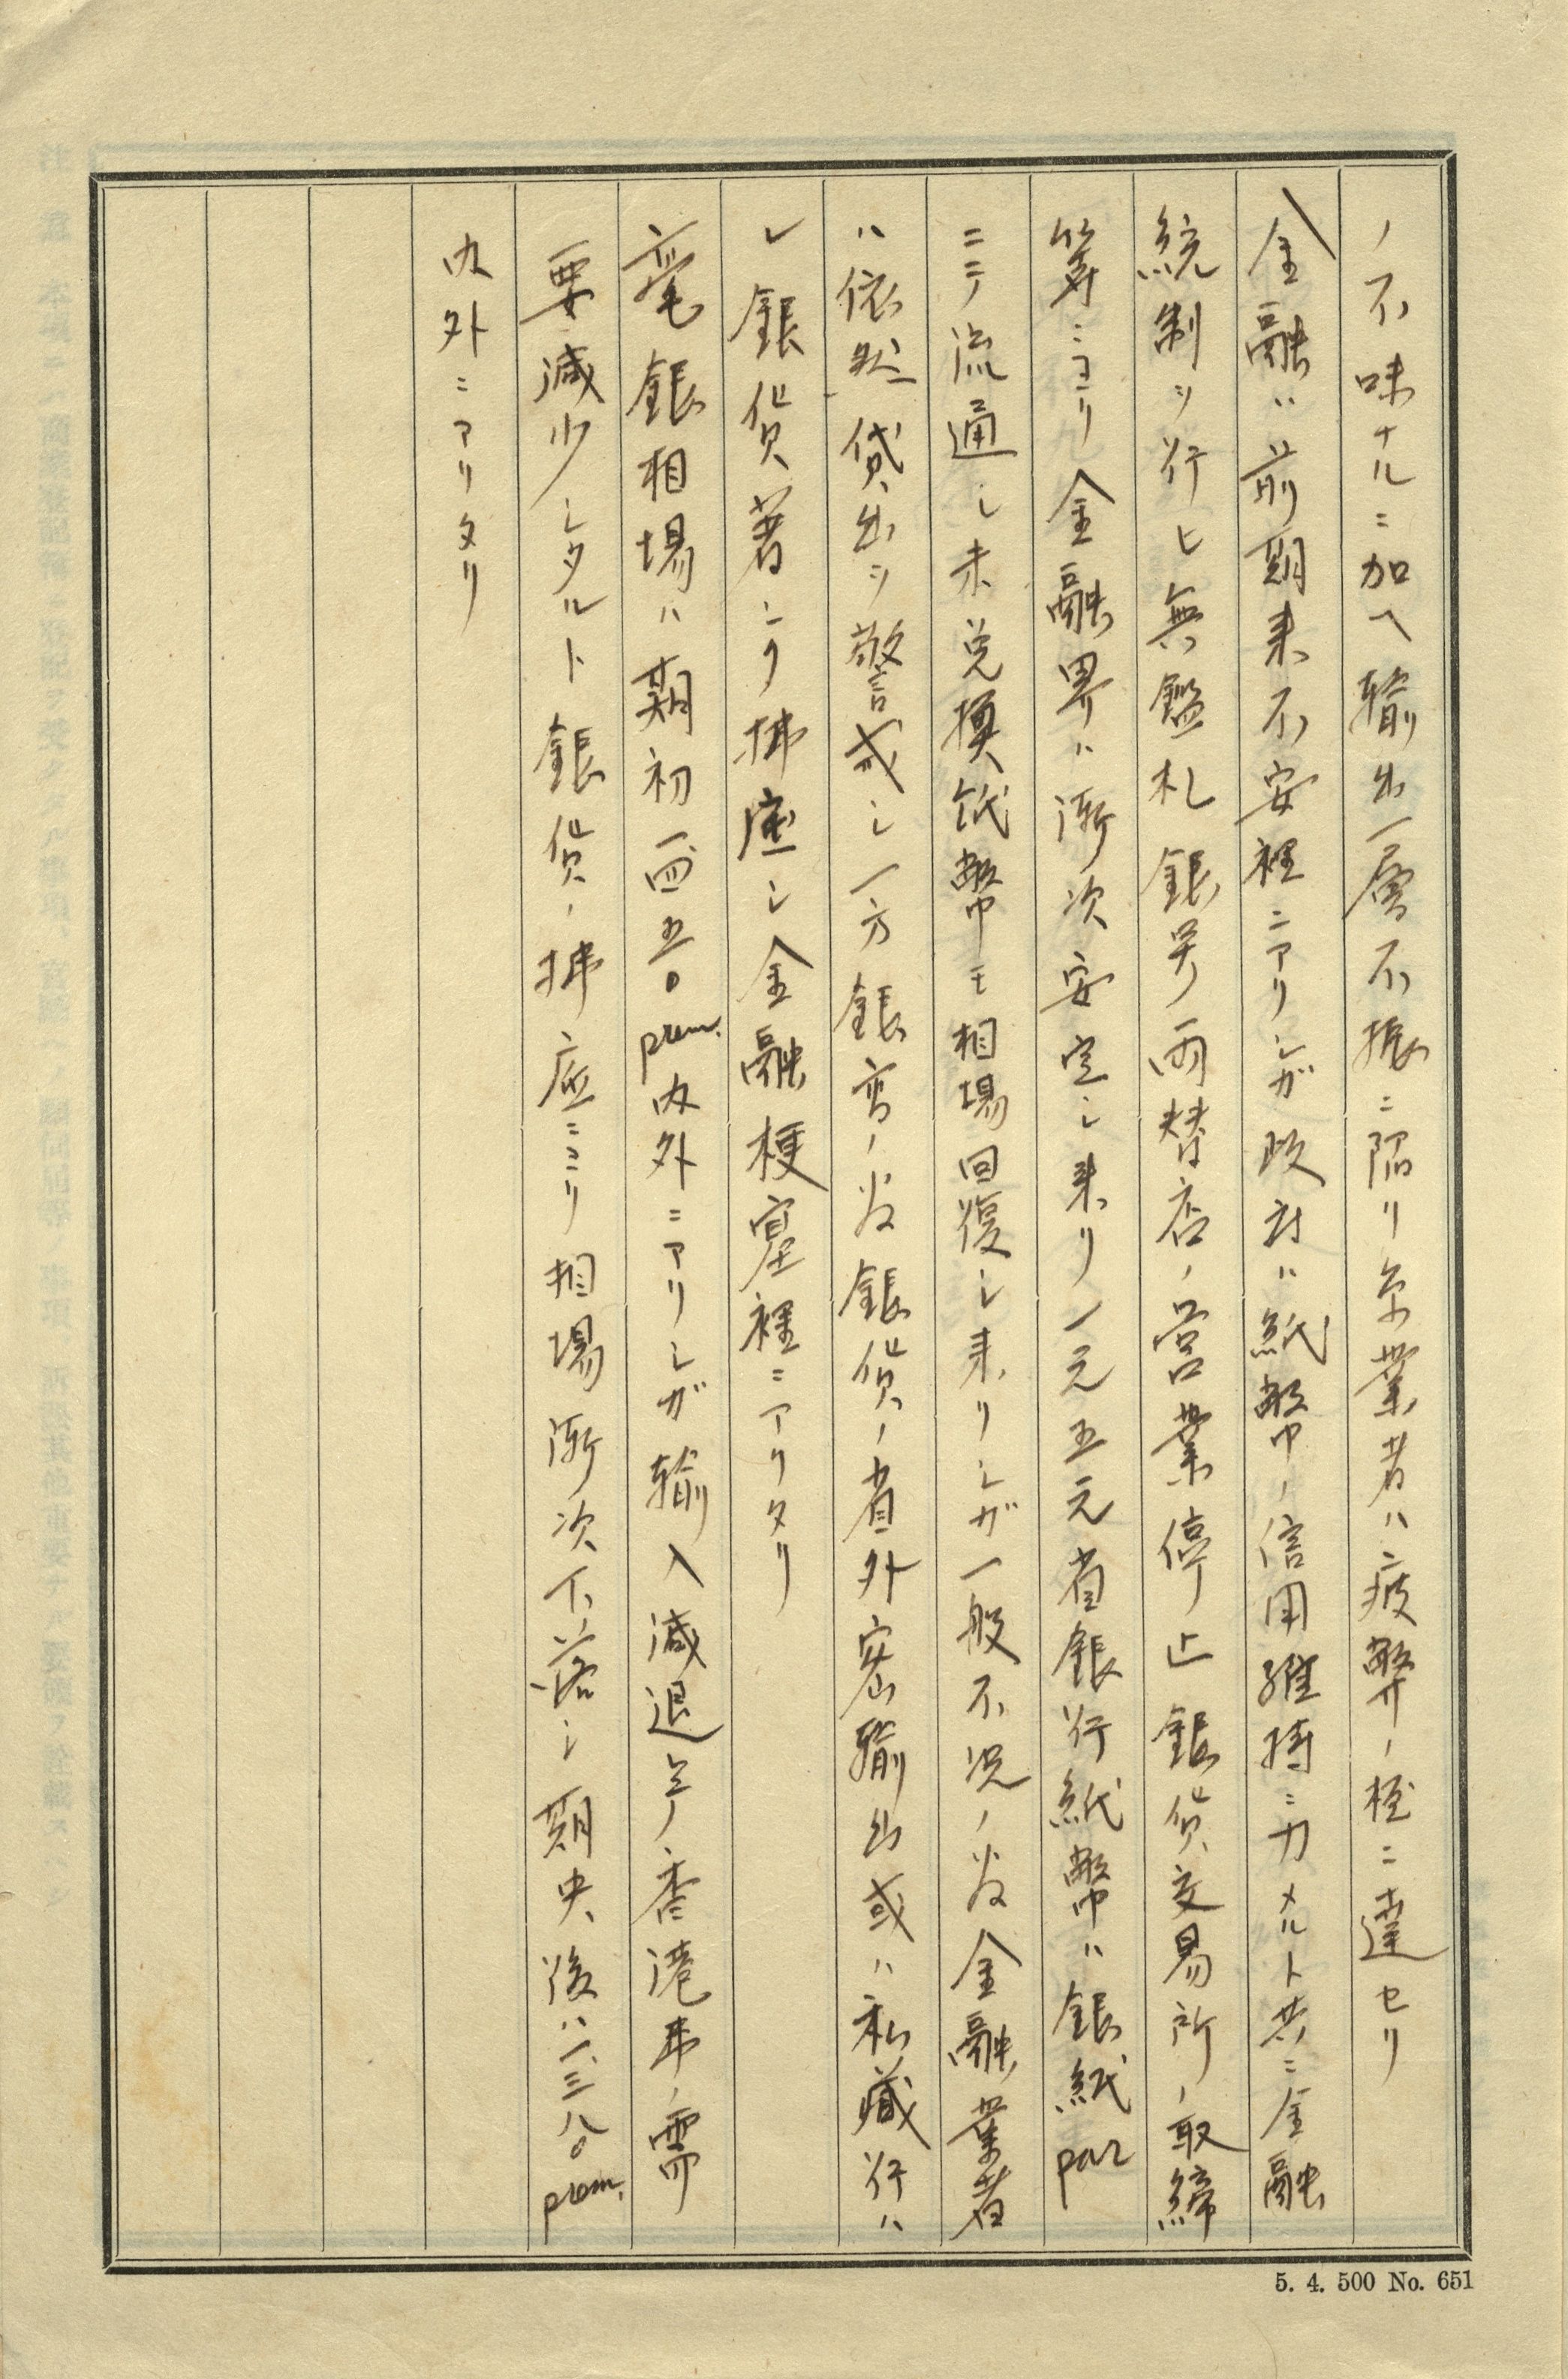 ノ不味ナルニ加ヘ輸出一層不振ニ陥リ糸業者ハ疲弊ノ極ニ達セリ
金融ハ前期来不安裡ニアリシガ政府ハ紙幣ノ信用維持ニ力メルト共ニ金融
統制ヲ行ヒ無鑑札銀号両替店ノ営業停止銀貨交易所ノ取締
等ニヨリ金融界ハ漸次安定シ来リ一元五元省銀行紙幣ハ銀紙par
ニテ流通シ未兌換紙幣モ相場回復シ来リシガ一般不況ノ為金融業者
ハ依然貸出ヲ警戒シ一方銀高ノ為銀貨ノ省外密輸出或ハ私蔵行ハ
レ銀貨著シク払底シ金融梗塞裡ニアリタリ
毫銀相場ハ期初一四五0prem.内外ニアリシガ輸入減退シテ香港弗ノ需
要減少シタルト銀貨ノ払底ニヨリ相場漸次下落シ期央後ハ一三八0prem.
内外ニアリタリ
5. 4. 500 No. 651